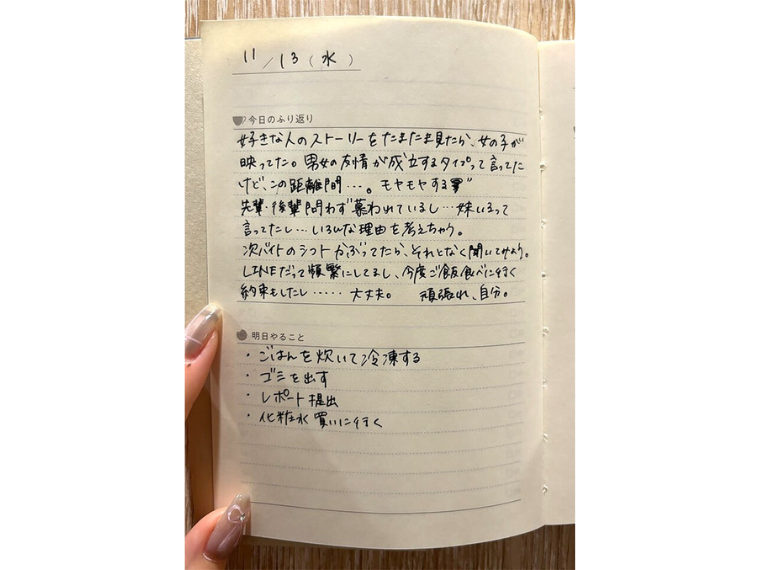 11/13(水)
今日のふり返り
好きな人のストーリーをたまたま見たら、女の子が
映ってた。男女の友情が成立するタイプって言ってた
けど、この距離間…。モヤモヤする
先輩・後輩問わず慕われているし…妹いるって
言ってたし…いろんな理由を考えちゃう。
次バイトのシフトかぶってたら、それとなく聞いてみよう。
LINEだって頻繁にしてるし、今度ご飯食べに行く
約束もしたし…… 大丈夫。 頑張れ、自分。
明日やること
・ごはんを炊いて冷凍する
・ゴミを出す
・レポート提出
・化粧水買いに行く